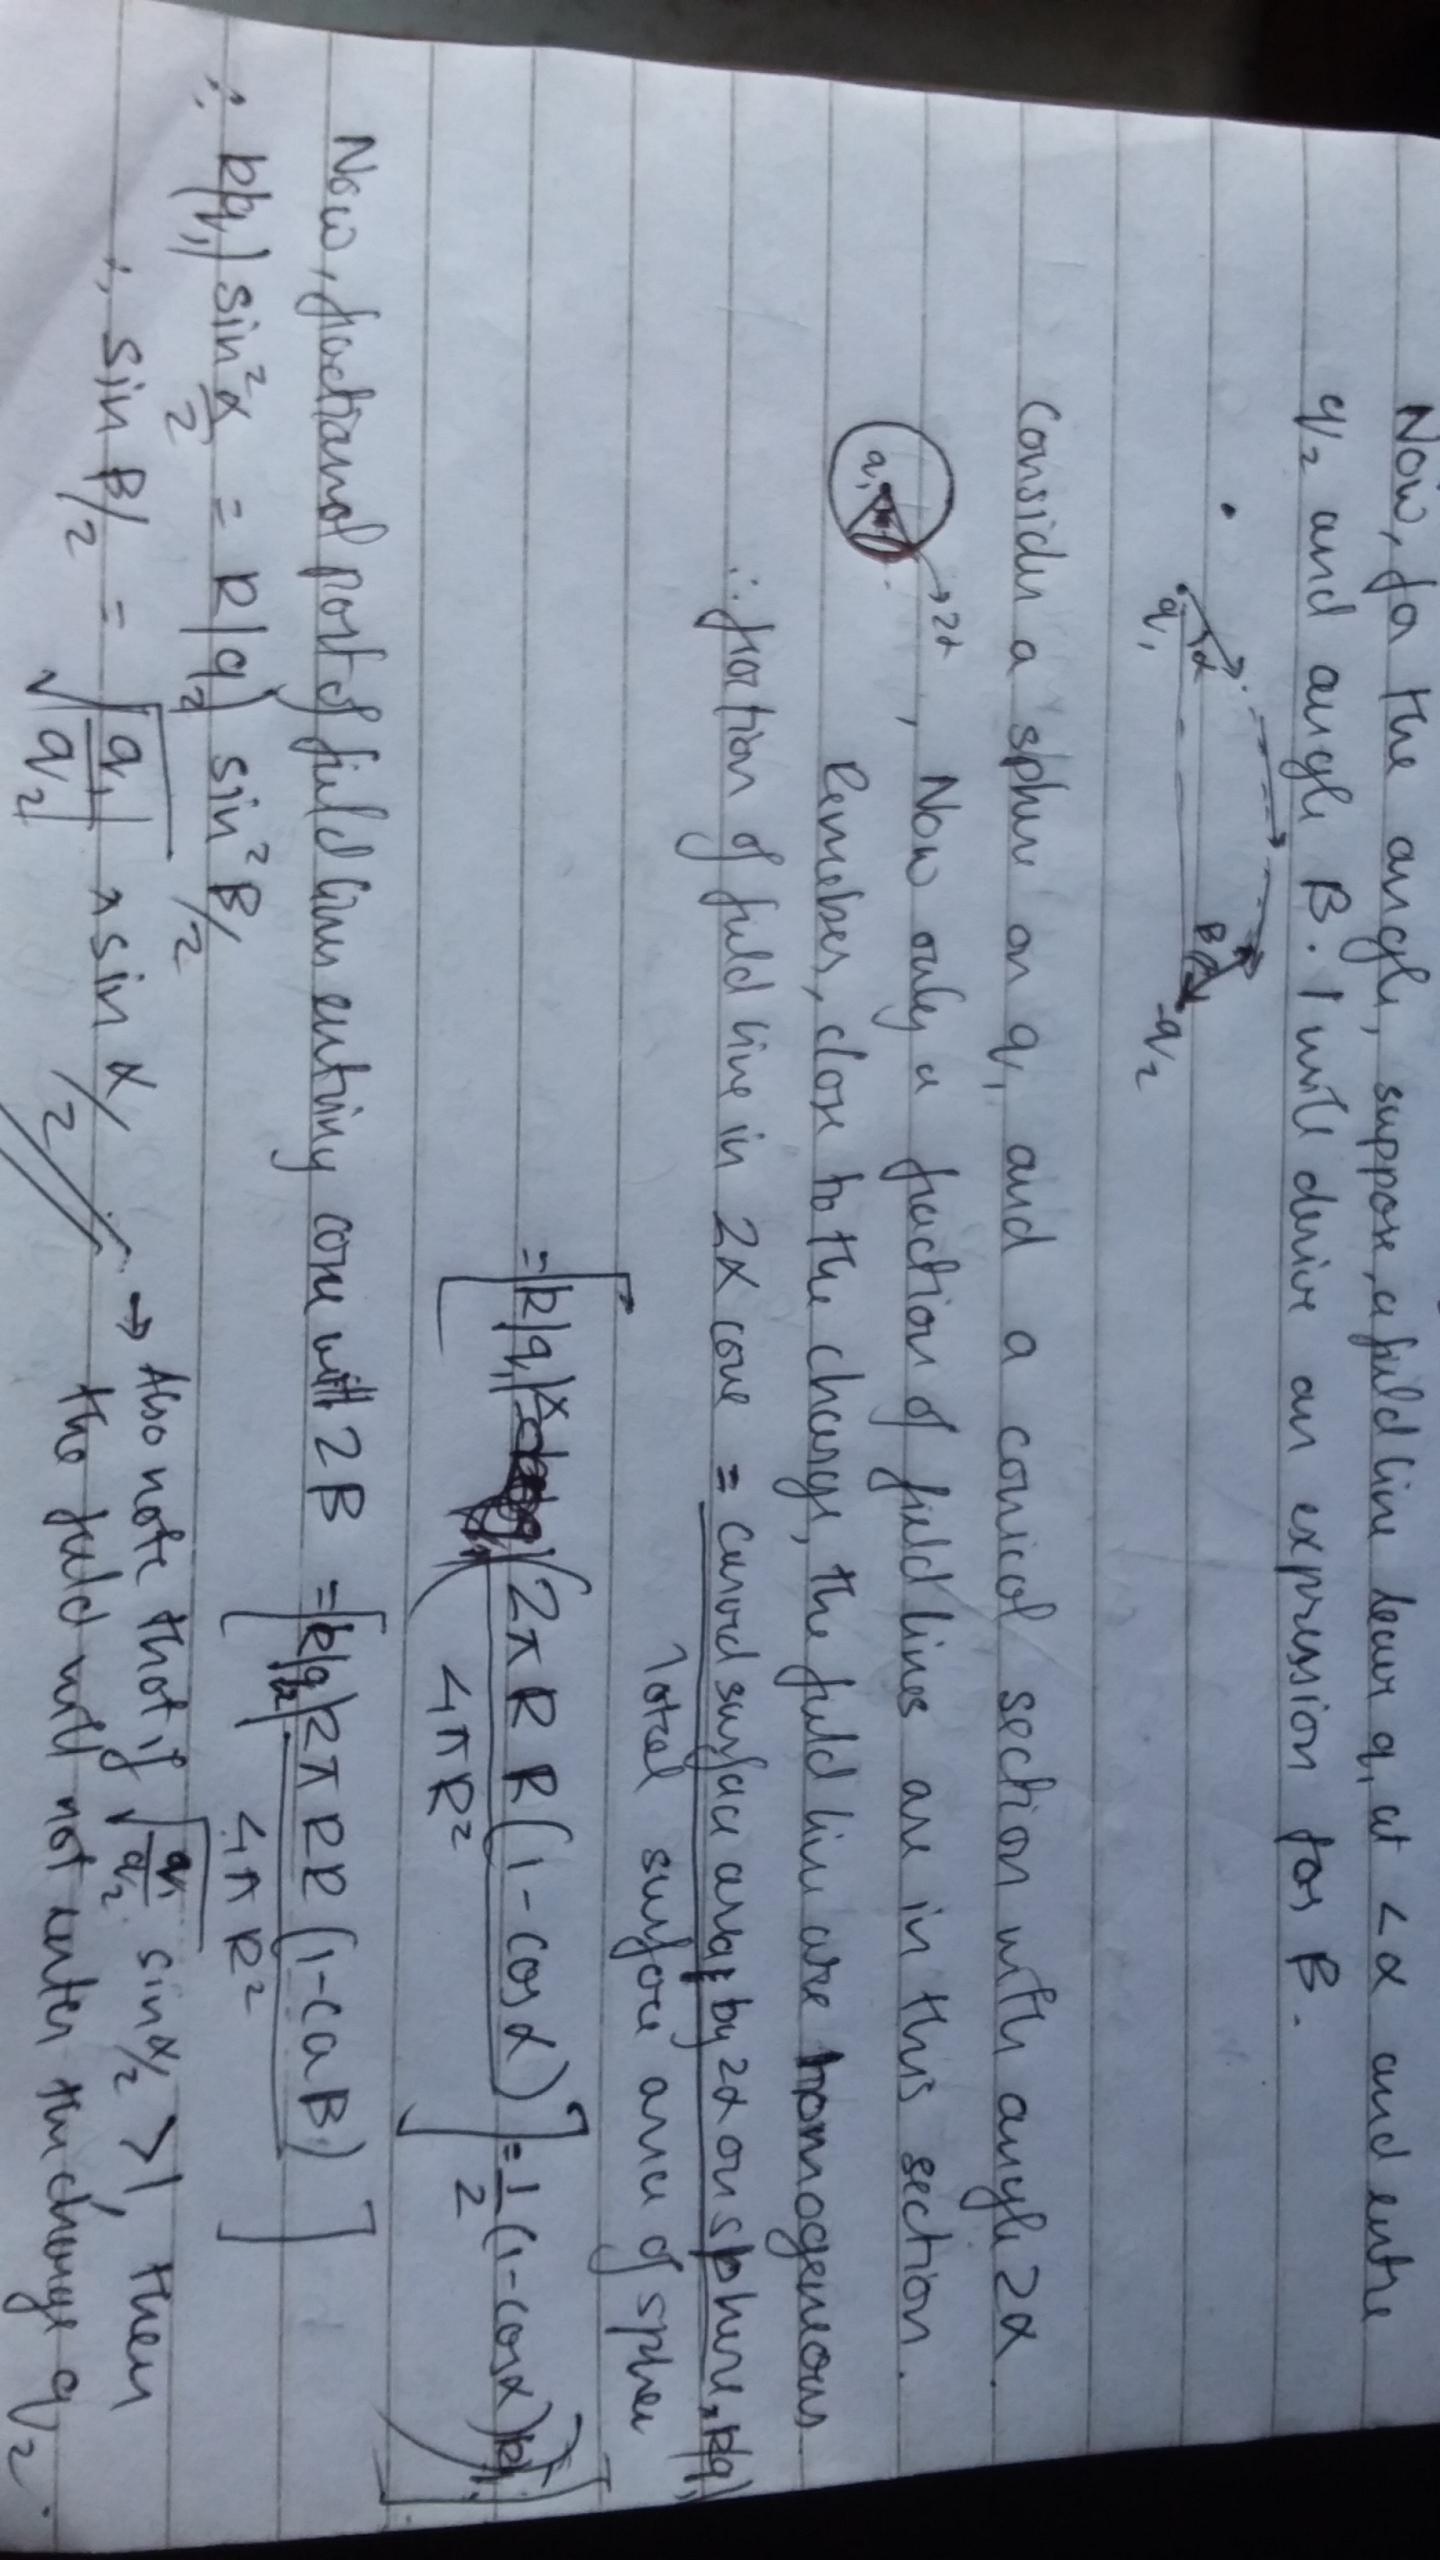 Now, for the angle, suppose, a field line leave q₁ at <α and enter
q₂ and angle B. I will derive an expression for B.
q₁ α B -q₂
Consider a sphere on q₁ and a conical section with angle 2α.
q₁ →2α, Now only a fraction of field lines are in this section.
Remeber, close to the charge, the field line are homogeneous
∴ fraction of field line in 2α cone = curved surface area by 2α on sphere × k|q₁|
Total surface area of spher
= [k|q₁| (2πR R(1-cosα) / 4πR²] = 1/2 (1-cosα) k|q₁|
Now, fractional part of field lines entring cone with 2B = [k|q₂| 2πRR(1-cosB) / 4πR²]
∴ k|q₁| sin² α/2 = k|q₂| sin² B/2
∴ sin B/2 = √|q₁/q₂| × sin α/2 → Also note that if √(q₁/q₂) sin α/2 > 1, then
the field will not enter the charge q₂.